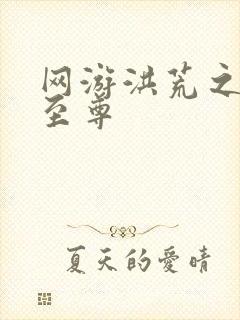 网游洪荒之
至尊
夏天的愛晴